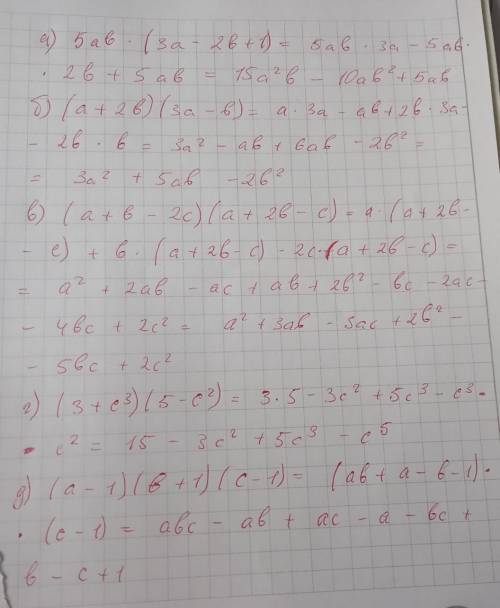 а) 5ab · (3a - 2b + 1) = 5ab · 3a - 5ab ·
· 2b + 5ab = 15a²b - 10ab² + 5ab
б) (a + 2b)(3a - b) = a · 3a - ab + 2b · 3a -
- 2b · b = 3a² - ab + 6ab - 2b² =
= 3a² + 5ab - 2b²
в) (a + b - 2c)(a + 2b - c) = a · (a + 2b -
- c) + b · (a + 2b - c) - 2c · (a + 2b - c) =
= a² + 2ab - ac + ab + 2b² - bc - 2ac -
- 4bc + 2c² = a² + 3ab - 3ac + 2b² -
- 5bc + 2c²
г) (3 + c³)(5 - c²) = 3 · 5 - 3c² + 5c³ - c³ ·
· c² = 15 - 3c² + 5c³ - c⁵
д) (a - 1)(b + 1)(c - 1) = (ab + a - b - 1) ·
· (c - 1) = abc - ab + ac - a - bc +
b - c + 1